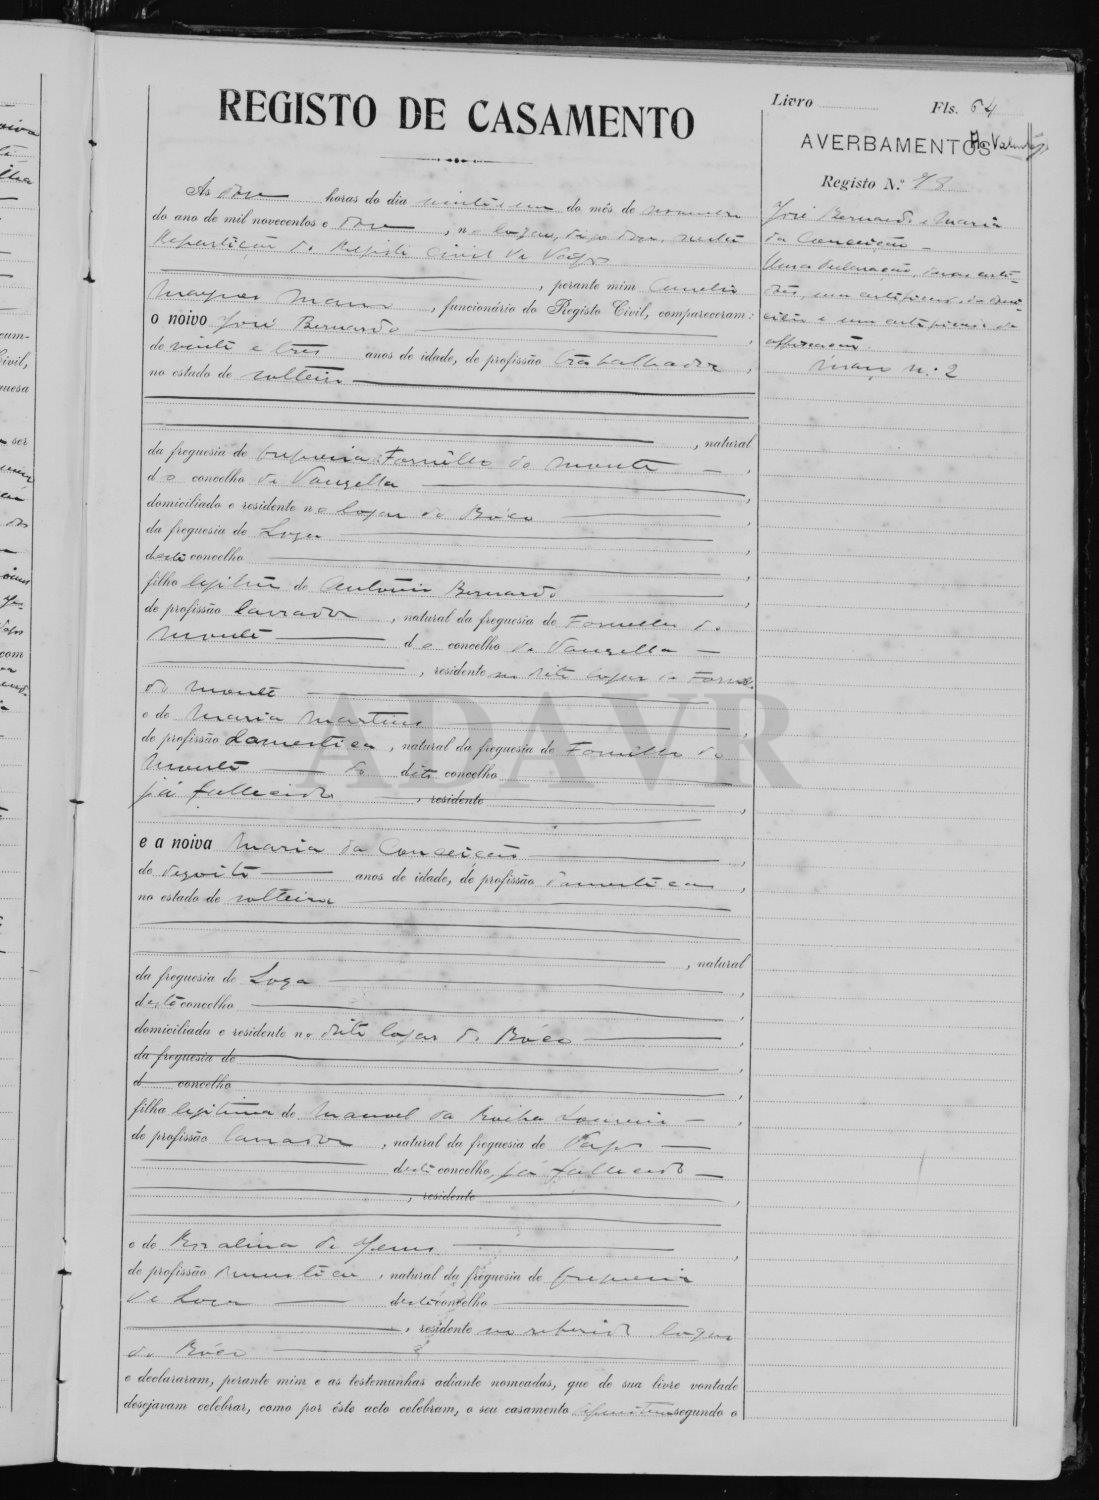 Livro Fls. 64
REGISTO DE CASAMENTO
AVERBAMENTOS
Registo N.º 98
José Bernardo e Maria
da Conceição
Uma declaração, duas certi-
dões, um certificado de
e um certificado de
Março n.º 2
Ás doze horas do dia vinte e um do mês de novembro
do ano de mil novecentos e doze, n
Repartição do Registo Civil de Vagos
, perante mim Aurelio
Marques Mano, funcionário do Registo Civil, compareceram:
o noivo José Bernardo
de vinte e tres anos de idade, de profissão trabalhador,
no estado de solteiro
, natural
da freguesia de freguesia Fornello do Monte,
do concelho de Vouzella,
domiciliado e residente no logar de Bôco,
da freguesia de Soza,
deste concelho,
filho legitimo de António Bernardo,
de profissão lavrador, natural da freguesia de Fornello do
Monte do concelho de Vouzella
, residente no dito logar de Fornello
do Monte,
e de Maria Martins,
de profissão domestica, natural da freguesia de Fornello do
Monte do dito concelho
já fallecida, residente,
e a noiva Maria da Conceição,
de dezoito anos de idade, de profissão domestica,
no estado de solteira
, natural
da freguesia de Soza,
deste concelho,
domiciliada e residente no dito logar de Bôco,
da freguesia de,
d concelho,
filha legitima de Manoel da Rocha Loureiro,
de profissão lavrador, natural da freguesia de Vagos
deste concelho, já fallecido
, residente,
e de Rosalina de Jesus,
de profissão domestica, natural da freguesia de freguesia
de Soza deste concelho
, residente no referido logar
de Bôco
e declararam, perante mim e as testemunhas adiante nomeadas, que de sua livre vontade
desejavam celebrar, como por êste acto celebram, o seu casamento segundo o
ADAVR